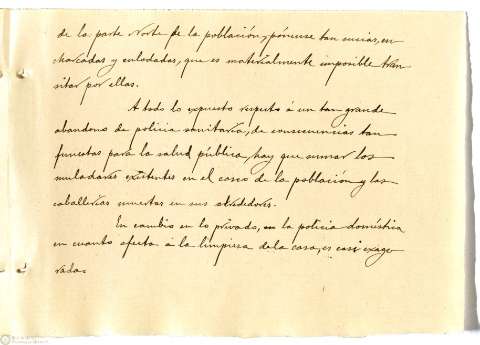 de la parte Norte de la población, pónense tan sucias, en
charcadas y enlodadas, que es materialmente imposible tran
sitar por ellas.
A todo lo expuesto respecto á un tan grande
abandono de policía sanitaria, de consecuencias tan
funestas para la salud pública, hay que sumar los
muladares existentes en el casco de la población y las
caballerías muertas en sus alrededores.
En cambio en lo privado, en la policía doméstica
en cuanto afecta á la limpieza de la casa, es casi exage
rada.